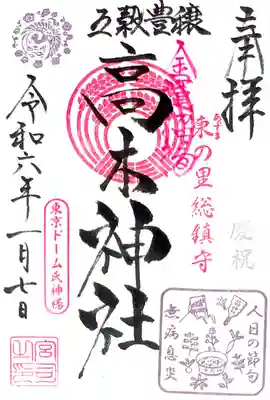 奉拝
五穀豊穣
高木神社
東の里総鎮守
あずま
慶祝
令和六年一月七日
東京ドーム氏神様
人日の節句
無病息災